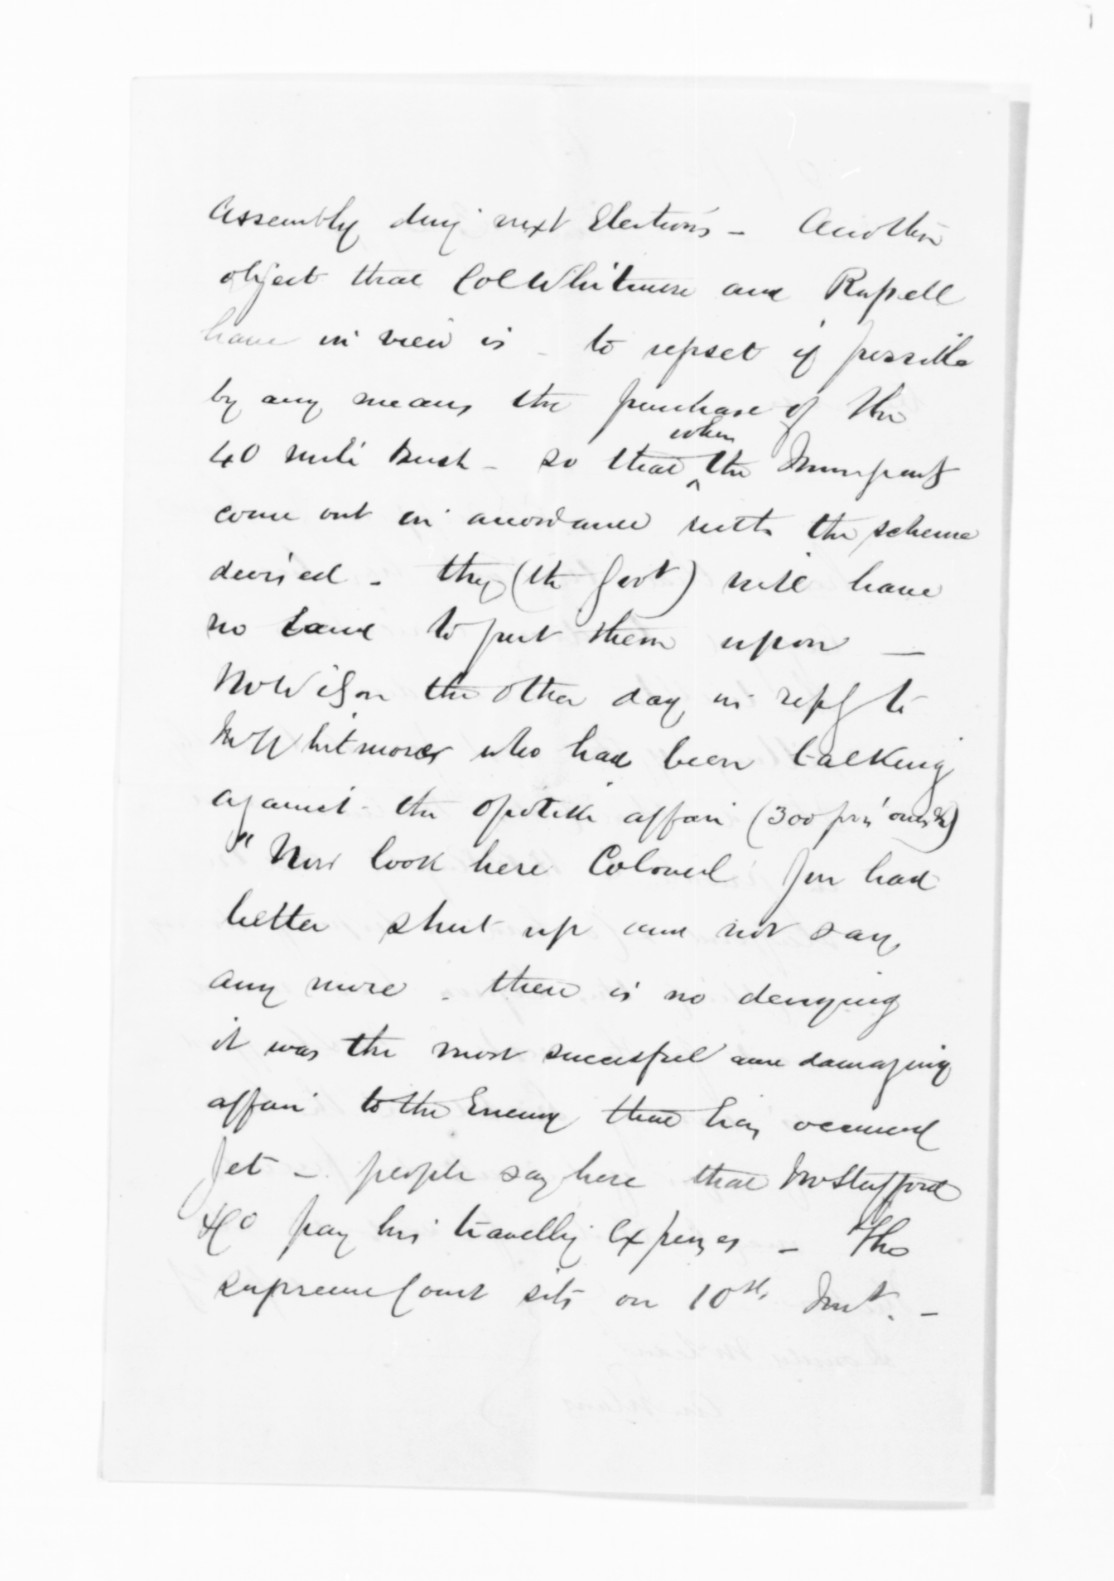 Assembly durg next Elections - Another
object that Col Whitmore and Russell
have in view is - to upset if possible
by any means the purchase of the
40 mile Bush - so that when the Immigrants
come out in accordance with the scheme
devised - they (the Govt) will have
no Land to put them upon -
the other day in reply to
Whitmore who had been talking
against the Opotiki affair (300
"Now look here Colonel you had
better shut up and not say
any more - there is no denying
it was the most successful and damaging
affair to the Enemy that has occurred
yet - people say here that Mr Stafford
pay his travellg Expenses - The
Supreme Court sits on 10th Inst. -